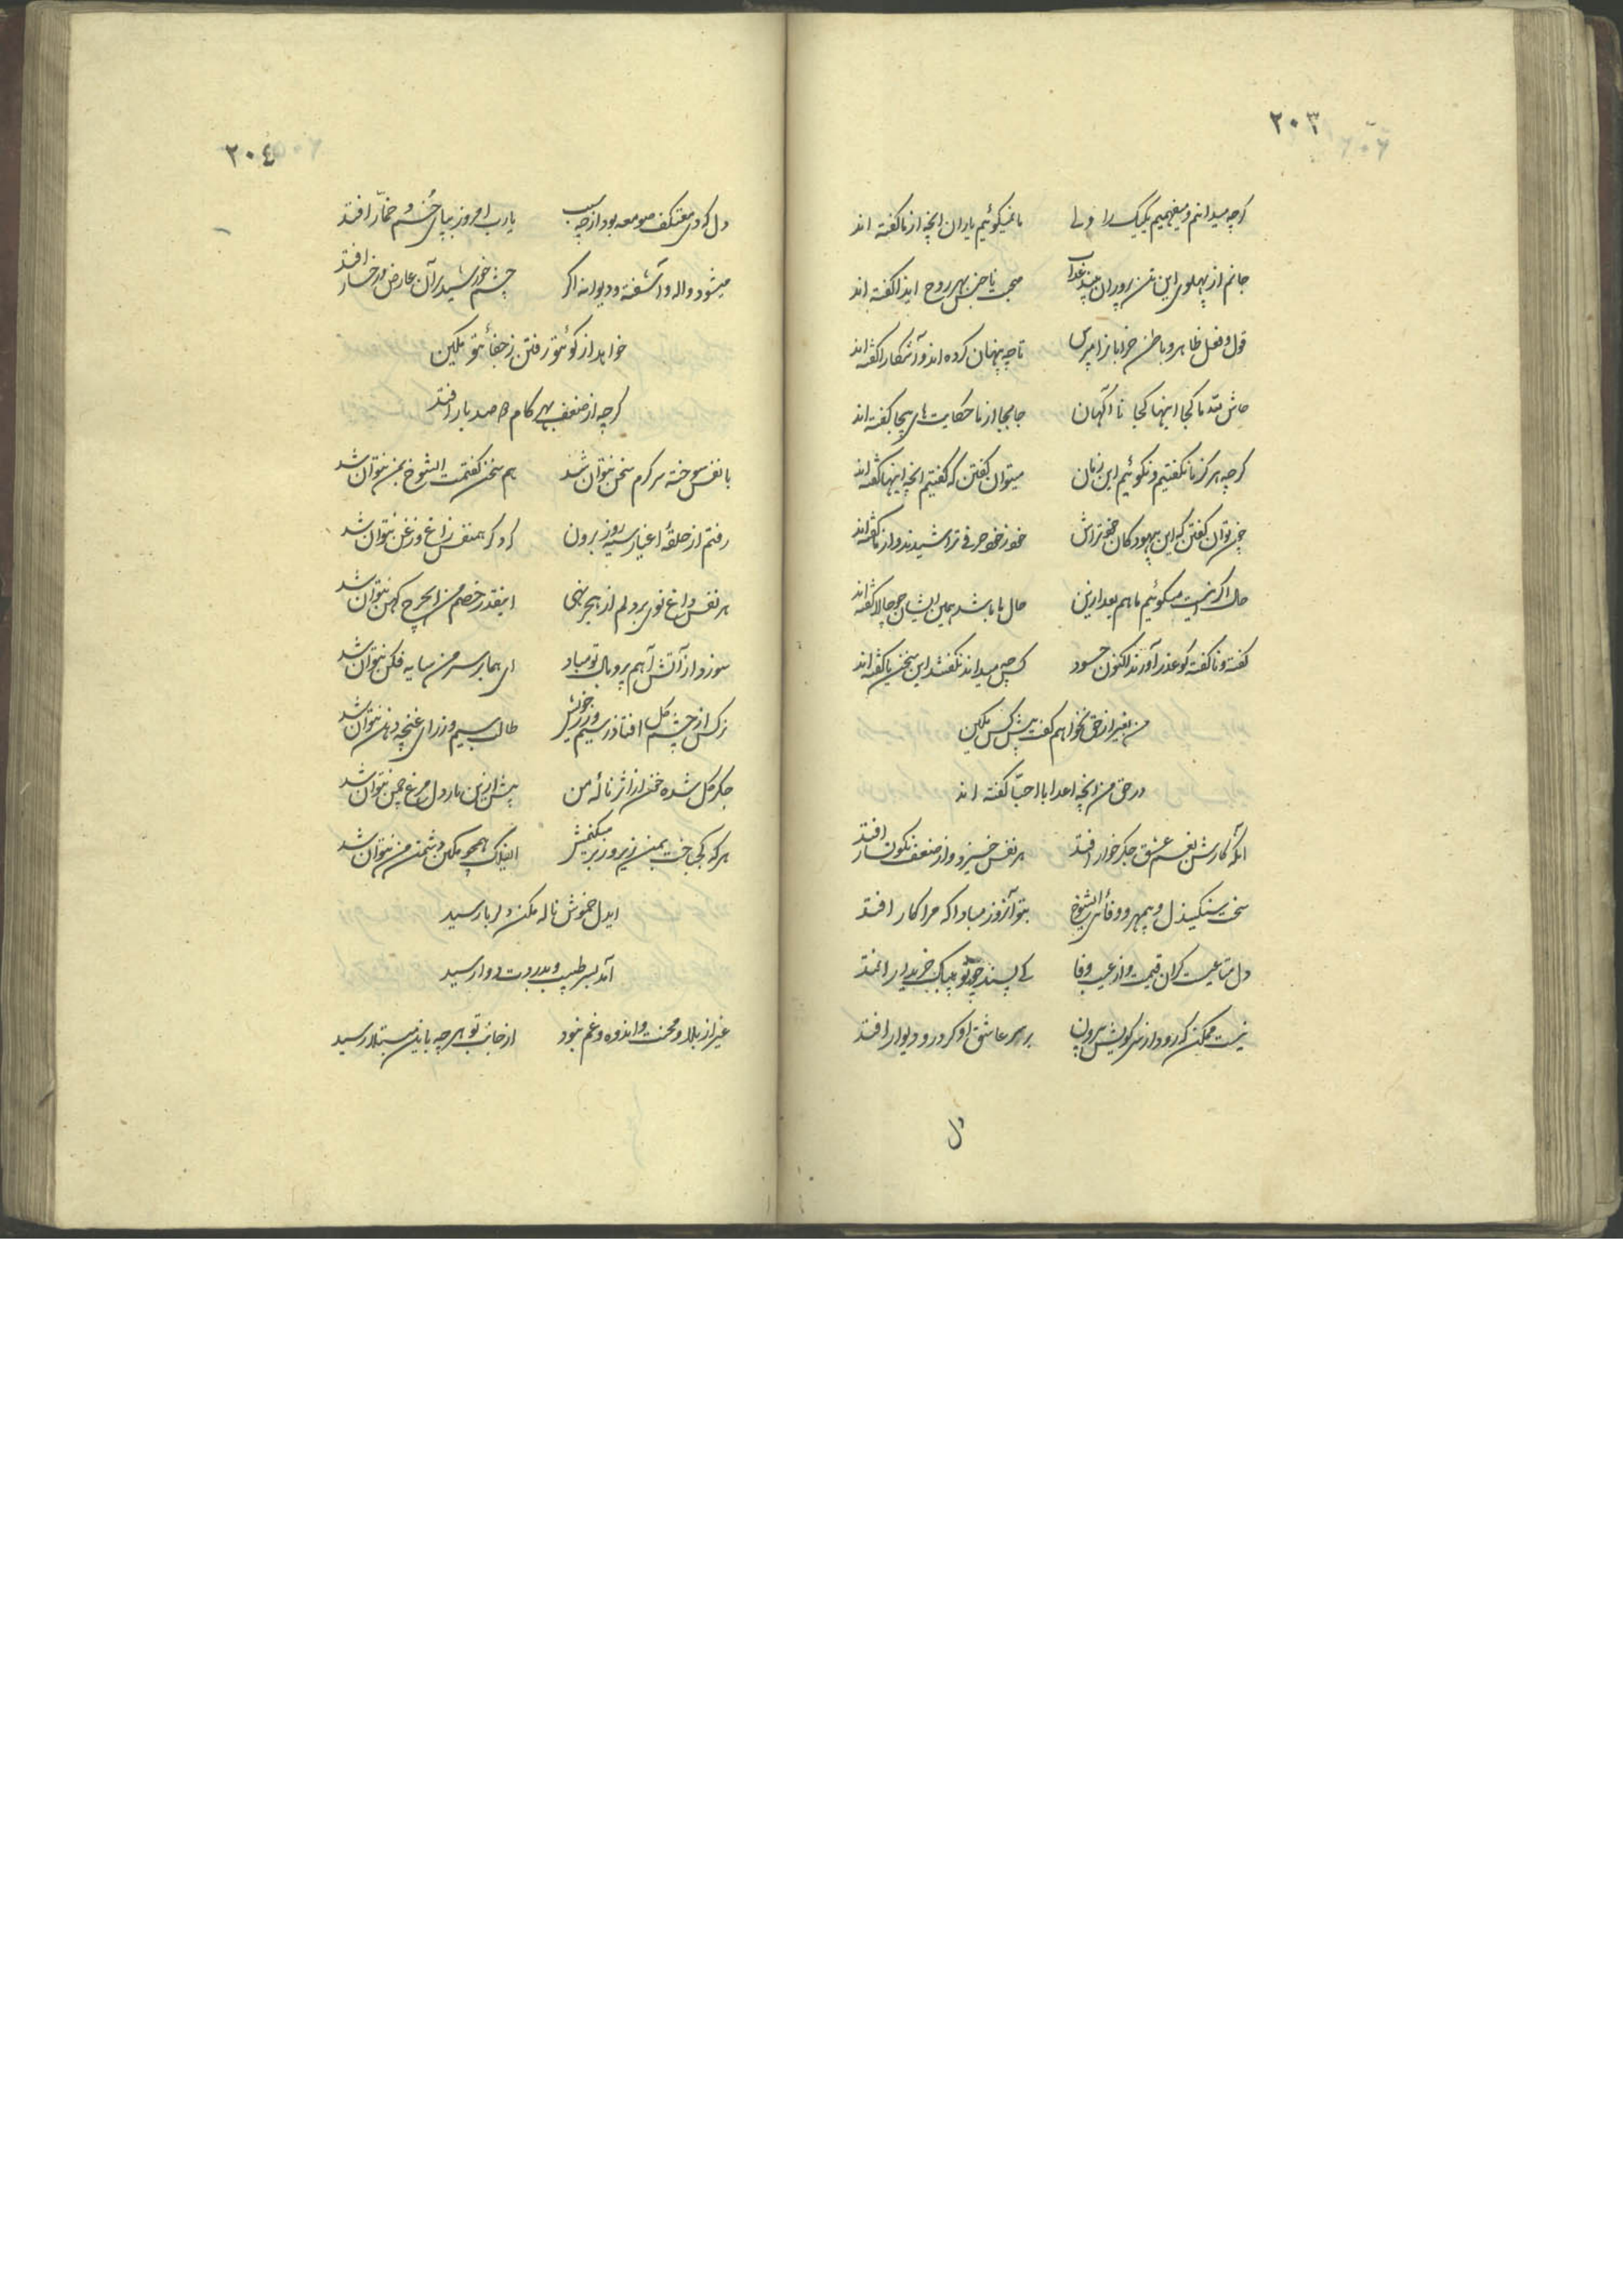 ٢٠٣
کرچه میدانیم و میفهمیم یکیک را ولی    ما نمیکوئیم یاران انچه از ما کفته اند
جانم از پهلوی این تن پروران بیند عذاب    صحبت ناجنس بهر روح ایذا کفته اند
قول و فعل ظاهر و باطن خرابانرا مپرس    تا چه پنهان کرده اند و آشکارا کفته اند
حاش لله ما کجا اینها کجا نا آکهان    جابجا از ما حکایت های بیجا کفته اند
کرچه هرکز ما نکفتیم و نکوئیم این زمان    میتوان کفتن که کفتیم انچه اینها کفته اند
چون توان کفتن که این بیهوده کان خودتراش    خود ز خود حرفی تراشیدند و از ما کفته اند
حال اکر اینست میکوئیم ما هم بعد ازین    حال ما باشد همین ایشان چو حالا کفته اند
کفته و ناکفته کو عذر آورند اکنون حسود    کس چه میداند نکفتند این سخن یا کفته اند
من بغیر از حق نخواهم کفت پیش کس مکین
در حق من انچه اعدا با احبّا کفته اند
آنکه کارش بغم عشق جکرخوار افتد    هر نفس خیزد و از ضعف نکونسار افتد
سخت سنکیندل و بیمهر و وفائی ایشوخ    بتو آنروز مبادا که مرا کار افتد
دل متاعیست کران قیمت و از عیب وفا    کی پسند چو تو بیباک خریدار افتد
نیست ممکن که رود از سر کویش بیرون    بر سر عاشق او کر در و دیوار افتد
دل
٢٠٤
دل که دی معتکف صومعه بود از چه سبب    یارب امروز بپای خم و خمّار افتد
میشود واله و آشفته و دیوانه اکر    چشم خورشید بر آن عارض و رخسار افتد
خواهد از کوئتو رفتن ز جفائتو مکین
کرچه از ضعف بهر کام صد بار افتد
با نفس سوخته سرکرم سخن نتوان شد    هم سخن کفتمت ایشوخ بمن نتوان شد
رفتم از حلقهٔ اغیار سیه روز برون    که دکر همنفس زاغ و زغن نتوان شد
هر نفس داغ نوی بر دلم از هجر نهی    اینقدر خصم من ای چرخ کهن نتوان شد
سوزد از آتش آهم پر و بال تو مباد    ای هما بر سر من سایه فکن نتوان شد
نرکس از چشم کل افتاد ز سیم و زر خویش    طالب سیم و زر ای غنچه دهن نتوان شد
جکر کل شده خون از اثر نالهٔ من    بیش ازین بار دل مرغ چمن نتوان شد
هر که کج باخت بمن زیر و زبر میکنمش    ای فلک همچو مکین دشمن من نتوان شد
ایدل خموش ناله مکن دلربا رسید
آمد بسر طبیب و بدردت دوا رسید
غیر از بلا و محنت و اندوه و غم نبود    از جانب تو هر چه باین مبتلا رسید